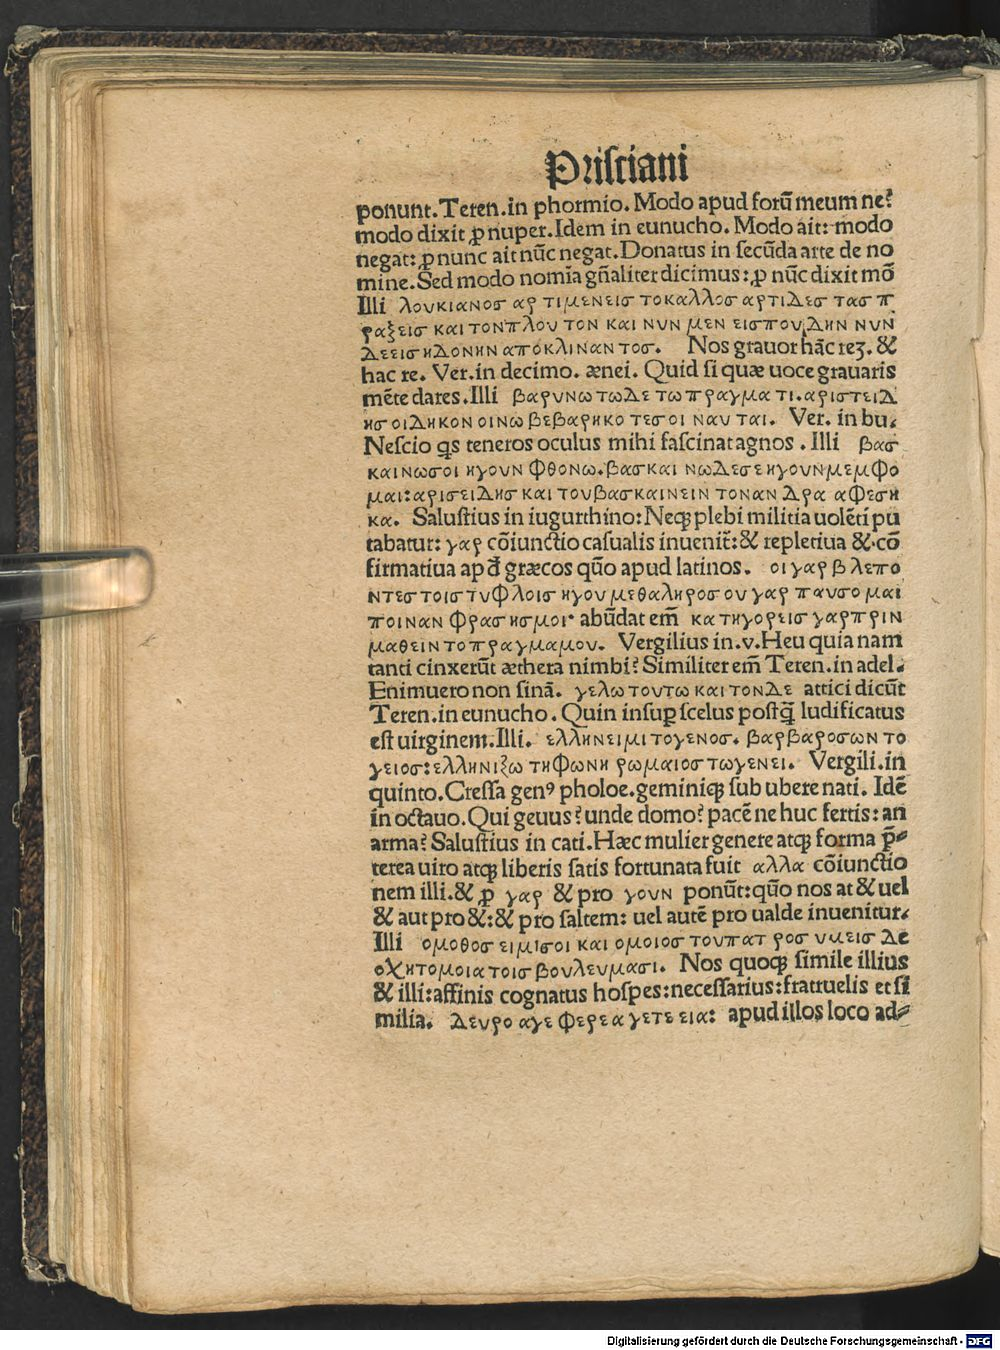 Priſciani
ponunt. Teren. in phormio. Modo apud forū meum ne?
modo dixit ꝓ nuper. Idem in eunucho. Modo ait: modo
negat: ꝓ nunc ait nūc negat. Donatus in ſecūda arte de no
mine. Sed modo nomīa gn̄aliter dicimus: ꝓ nūc dixit mō
Illi λουκιανοσ αρ τιμενεισ τοκαλλοσ αρτιδεσ τασ π
ραξεισ και τονπλου τον και νυν μεν εισπουδην νυν
δεεισ ηδονην αποκλιναντοσ. Nos grauor hāc reꝫ. &
hac re. Ver. in decimo. ænei. Quid ſi quæ uoce grauaris
mēte dares. Illi βαρυνω τωδε τωπραγμα τι. αριστειδ
ησ οιδηκον οινω βεβαρηκο τεσ οι ναυ ται. Ver. in bu.
Neſcio qs teneros oculus mihi faſcinat agnos. Illi βασ
καινωσοι ηγουν φθονω. βασκαι νωδεσε ηγουν μεμφο
μαι: αρισειδησ και του βασκαινειν τοναν δρα αφεση
κα. Saluſtius in iugurthino: Neqꝫ plebi militia uolēti pu
tabatur: γαρ cōiunctio caſualis inuenit̄: & repletiua & cō
firmatiua apđ græcos quo apud latinos. οι γαρ βλεπο
ντεσ τοισ τυφλοισ ηγου μεθαληροσ ου γαρ παυσο μαι
ποιναν φρασ ησμοι abūdat em̄ κατηγορεισ γαρ πριν
μαθειν το πραγμαμου. Vergilius in. v. Heu quia nam
tanti cinxerūt æthera nimbi? Similiter em̄ Teren. in adel.
Enimuero non ſinā. γελω τουτω και τονδε attici dicūt
Teren. in eunucho. Quin inſuꝑ ſcelus poſtq̄ ludificatus
eſt uirginem. Illi. ελλην ειμι το γενοσ. βαρβαροσων το
γειοσ: ελληνιξω τη φωνη ρωμαιοσ τωγενει. Vergili. in
quinto. Creſſa genꝰ pholoe. geminiqꝫ ſub ubere nati. Idē
in octauo. Qui geuus? unde domo? pacē ne huc fertis: an
arma? Saluſtius in cati. Hæc mulier genere atqꝫ forma p̄
terea uiro atqꝫ liberis ſatis fortunata fuit αλλα cōiunctio
nem illi. & ꝓ γαρ & pro γουν ponūt: quo nos at & uel
& aut pro &: & pro ſaltem: uel autē pro ualde inuenitur.
Illi ομοθοσ ειμι σοι και ομοιοσ του πατ ροσ υμεισ δε
οχητομοια τοισ βουλευμασι. Nos quoqꝫ ſimile illius
& illi: affinis cognatus hoſpes: neceſſarius: fratruelis et ſi
milia. δευρο αγε φερε αγετε εια: apud illos loco ad⸗
Digitalisierung gefördert durch die Deutsche Forschungsgemeinschaft - DFG